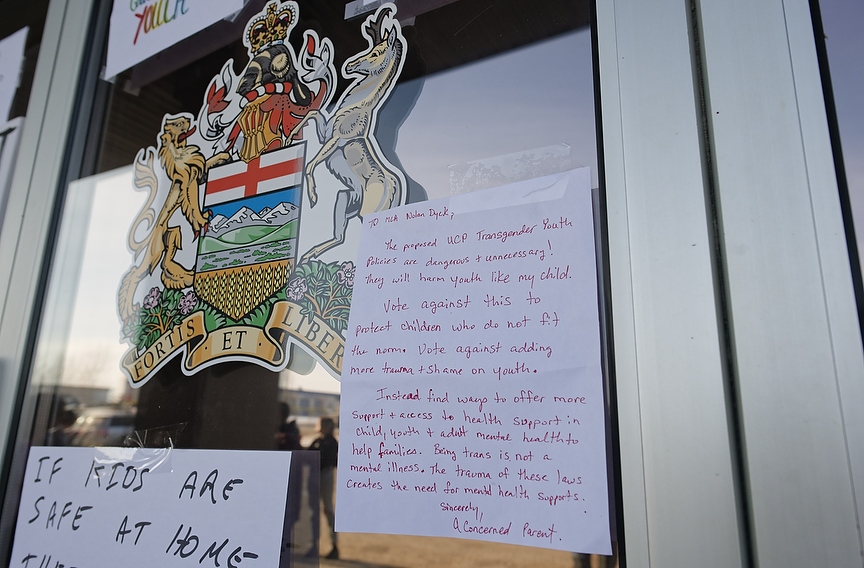 YOUTH
FORTIS ET LIBER
TO MLA Nolan Dyck,
The proposed UCP Transgender Youth
Policies are dangerous + unnecessary!
They will harm youth like my child.
Vote against this to
protect children who do not fit
the norm. Vote against adding
more trauma + shame on youth.
Instead find ways to offer more
Support + access to health support in
child, youth + adult mental health to
help families. Being trans is not a
mental illness. The trauma of these laws
creates the need for mental health supports.
Sincerely,
A Concerned Parent.
IF KIDS ARE
SAFE AT HOME